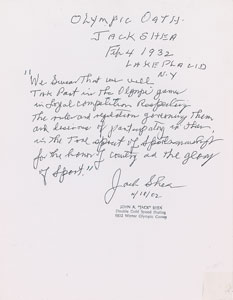 OLYMPIC OATH
JACK SHEA
Feb 4 1932
LAKE PLACID
N.Y
"We Swear that we will
Take Part in the Olympic games
in Loyal competition Respecting
The rules and regulations governing them
and desirous of participating in them
in the True spirit of Sportsmanship
for the honor of country and the glory
of Sport."
Jack Shea
1/18/02
JOHN A. "JACK" SHEA
Double Gold Speed Skating
1932 Winter Olympic Games